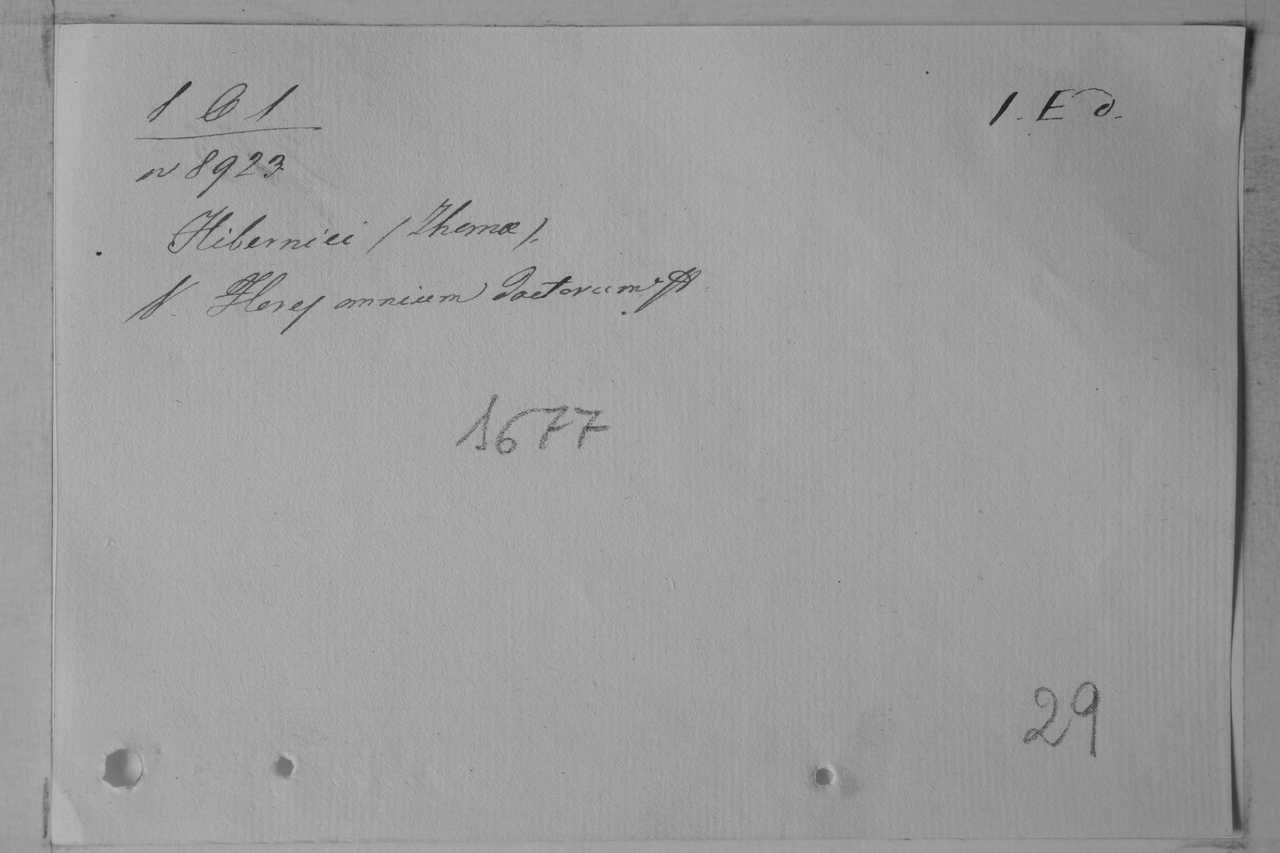 1 C 1
1. E d.
n 8923
Hibernici (Thomæ).
Flores omnium doctorum
1677
29